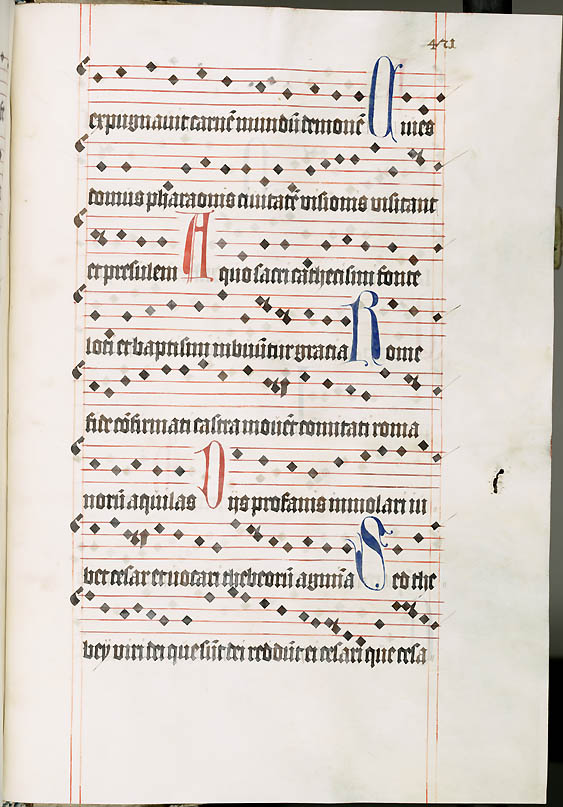 471
expugnauit carnē mundū demonē Ciues
domus pharaonis ciuitatē visionis visitant
et presulem A quo sacri cathecismi fonte
loti et baptismi inbuūtur gracia Rome
fide cōfirmati castra mouēt comitati roma
norū aquilas Dijs profanis immolari iu
bet cesar et vocari thebeorū agmīa Sed the
bey viri dei que sūt dei reddūt et cesari que cesa